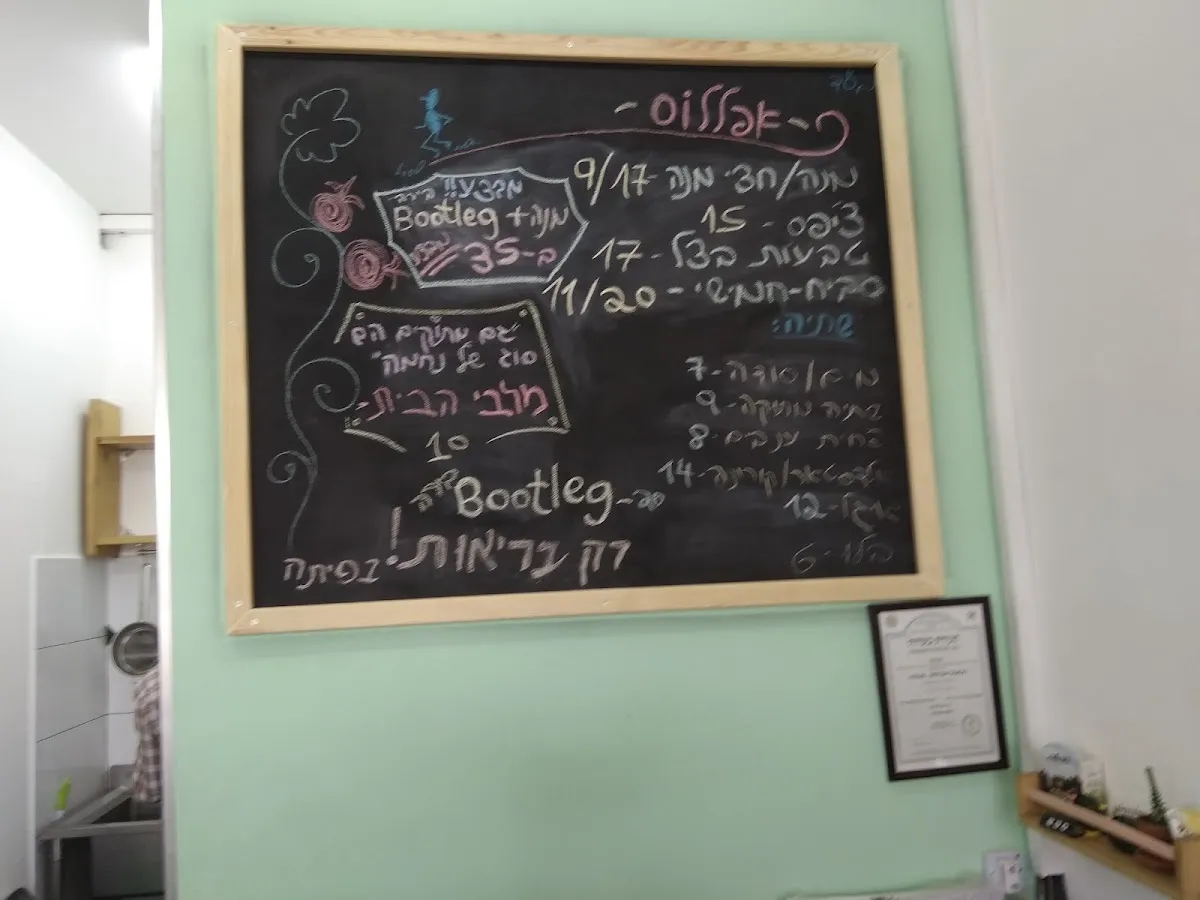 פ-אפללוס-
מנה/חצי מנה-9/17
צ'יפס - 15
טבעות בצל-17
סביח-חמישי - 11/20
שתיה:
מים/סודה-7
שתיה מתוקה-9
תחית ענבים-8
גולדסטאר/קורונה-14
בלו-6
מבצע!! בירה
מנה+ Bootleg
ב-35
"גם מתוקים הם
סוג של נחמה"
מלבי הבית-
10
Bootleg
רק בריאות!
בפיתה